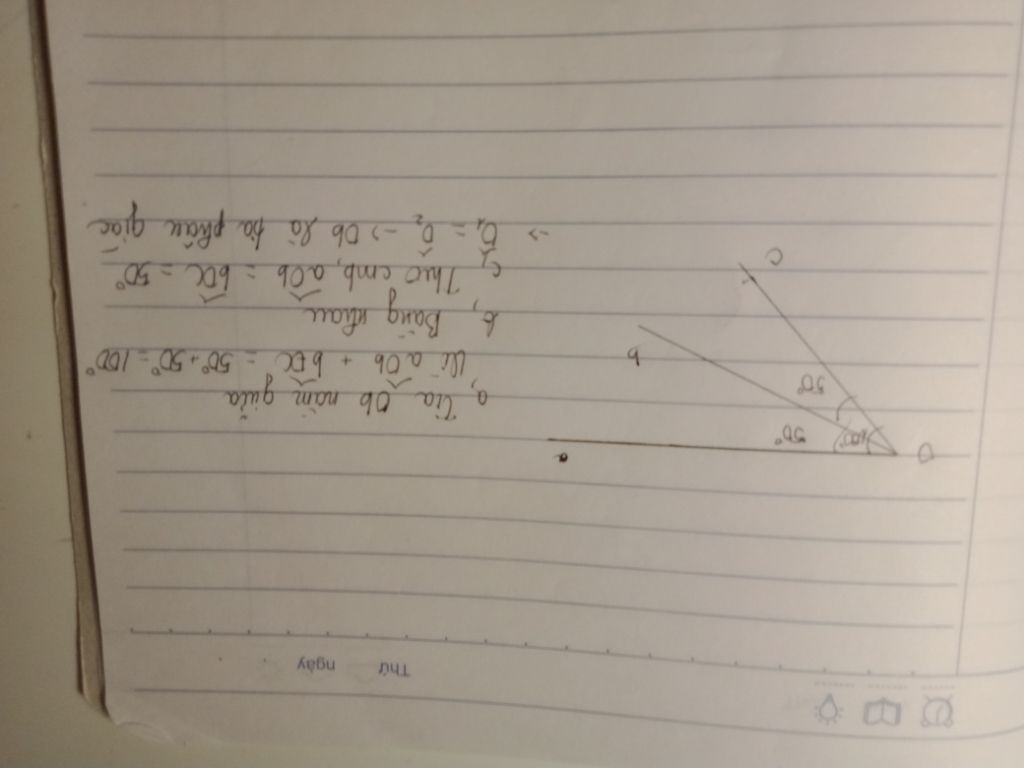 Thứ ngày
O
a
50°
100°
50°
b
C
a, Tia Ob nằm giữa
Vì aOb + bOC = 50° + 50° = 100°
b, Bằng nhau
c, Theo cmb, aOb = bOC = 50°
→ O₁ = O₂ → Ob là tia phân giác